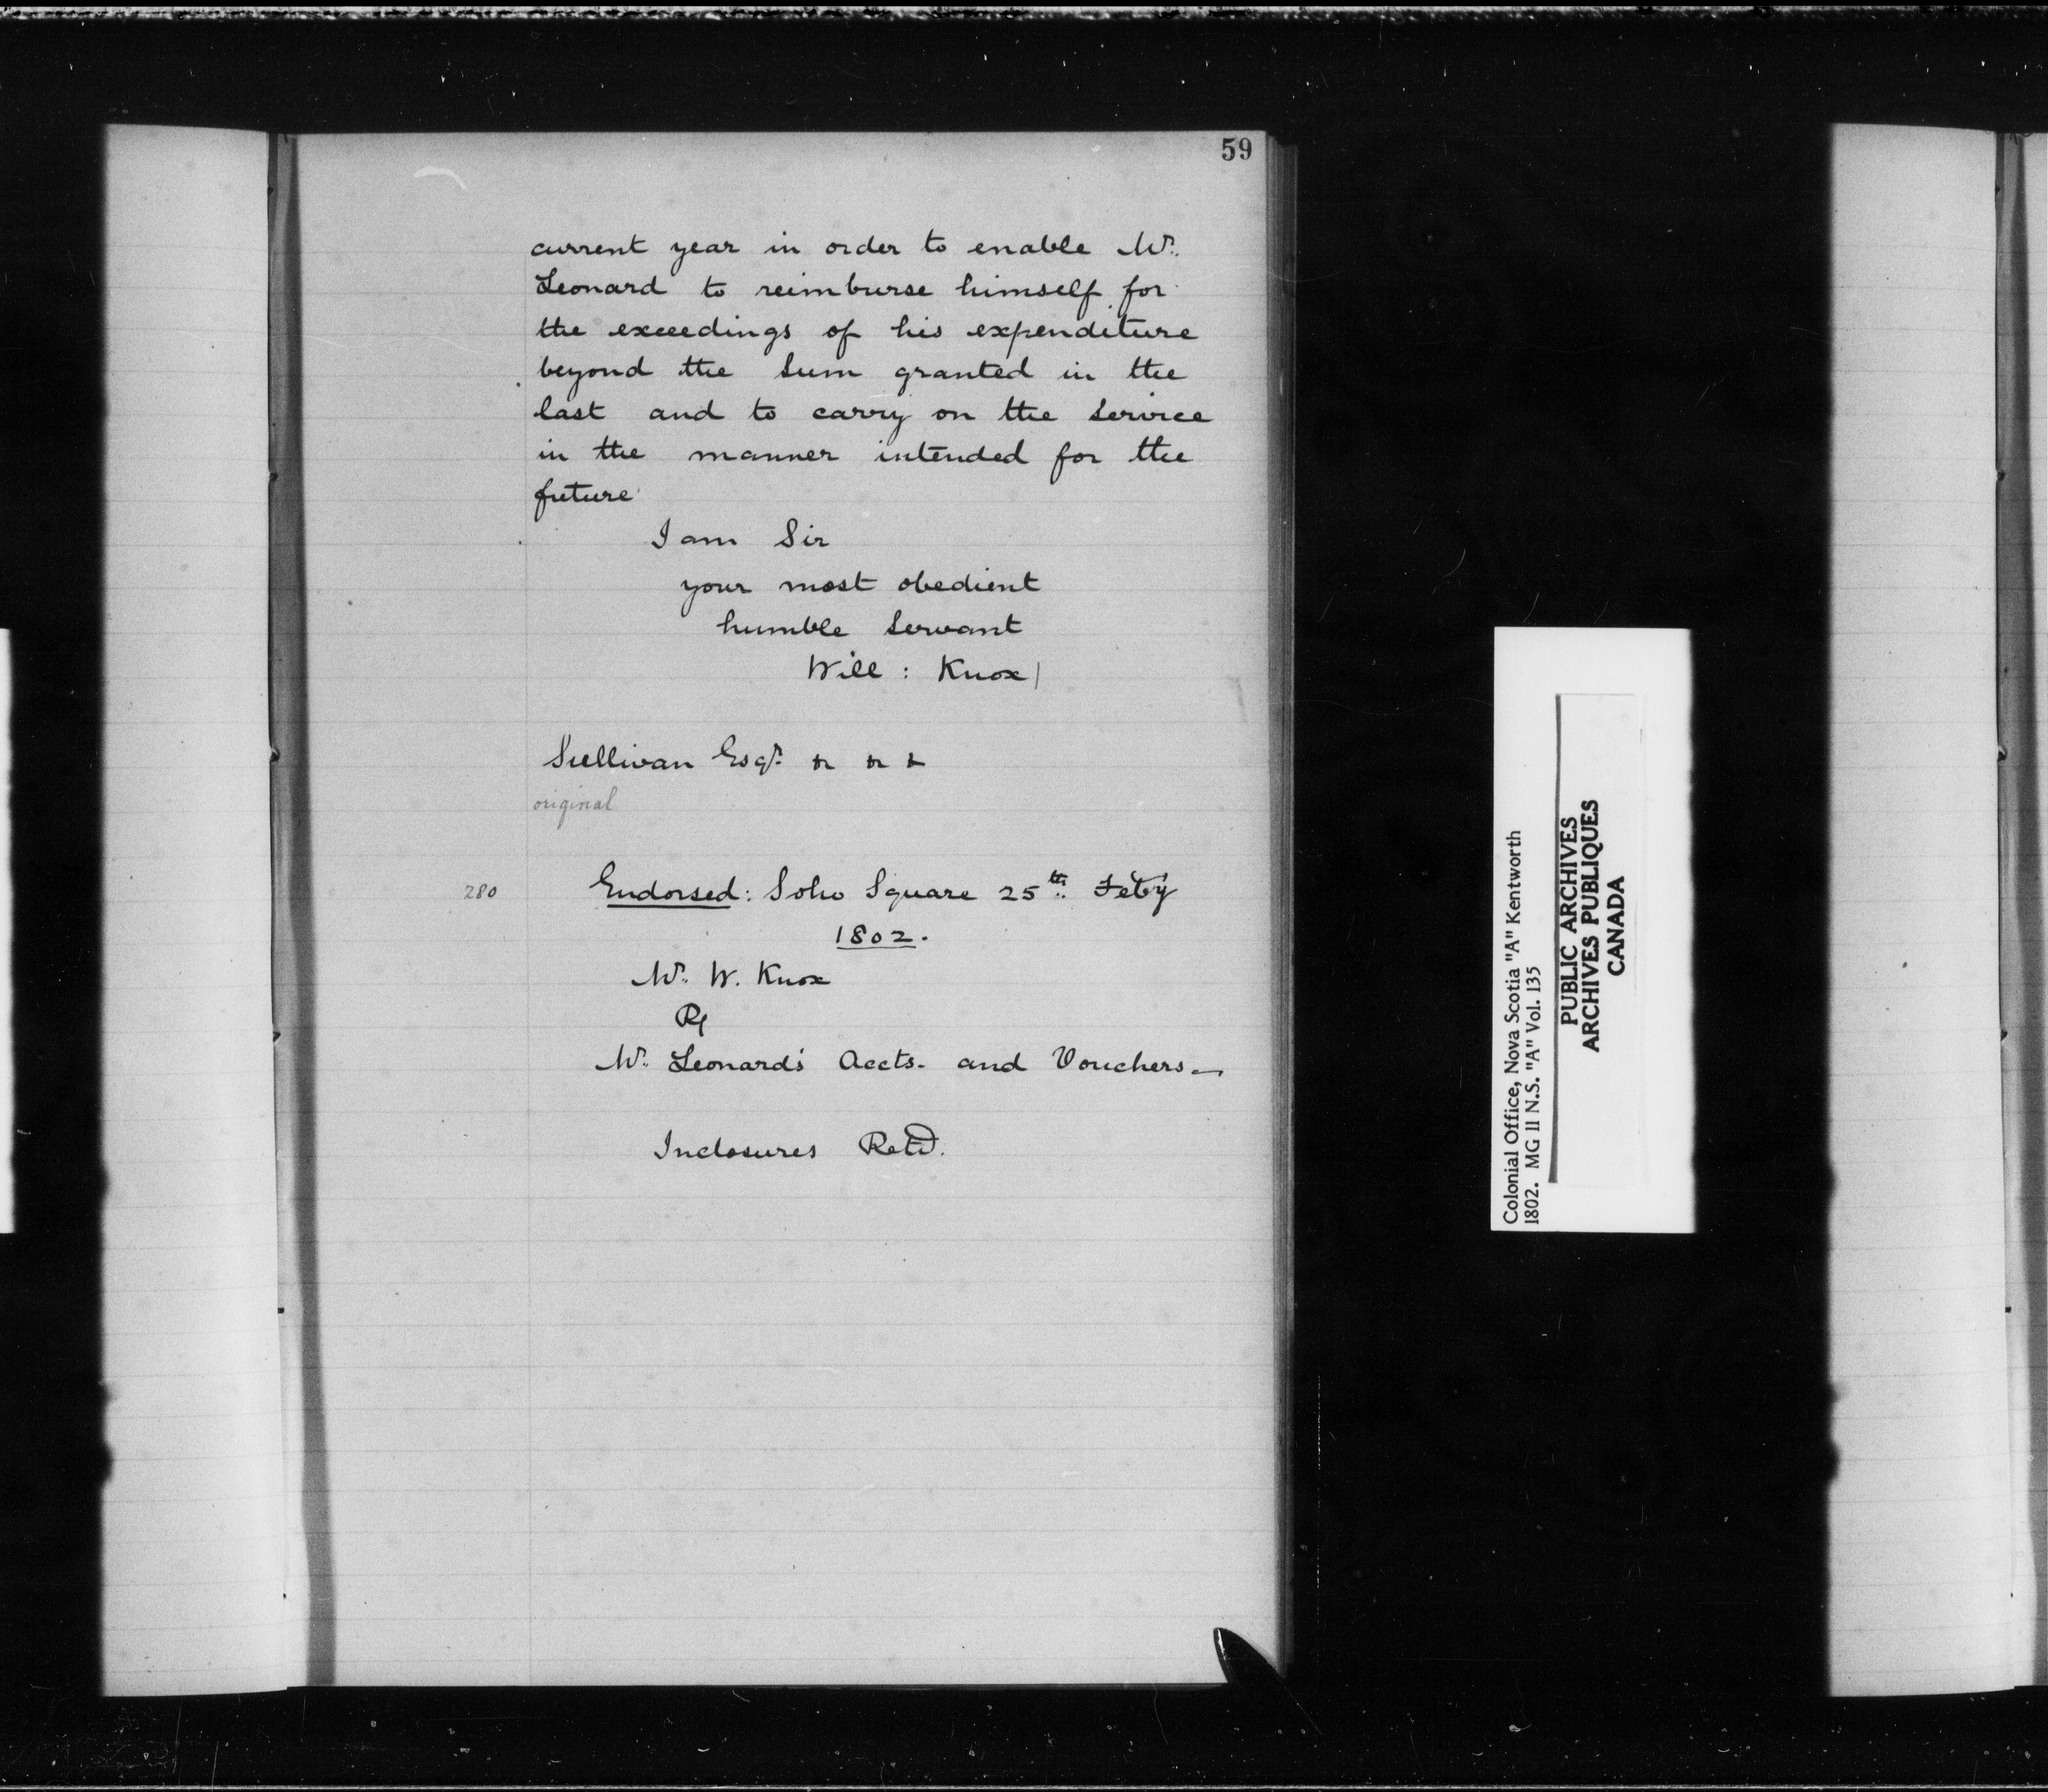 59
current year in order to enable Mr.
Leonard to reimburse himself for
the exceedings of his expenditure
beyond the Sum granted in the
last and to carry on the Service
in the manner intended for the
future
I am Sir
your most obedient
humble Servant
Will: Knox
Sullivan Esqr. & & &
original
280
Endorsed: Soho Square 25th. Feby
1802.
Mr. W. Knox
R/
Mr. Leonard's Accts. and Vouchers—
Inclosures Retd.
Colonial Office, Nova Scotia "A" Kentworth
1802. MG 11 N.S. "A" Vol. 135
PUBLIC ARCHIVES
ARCHIVES PUBLIQUES
CANADA